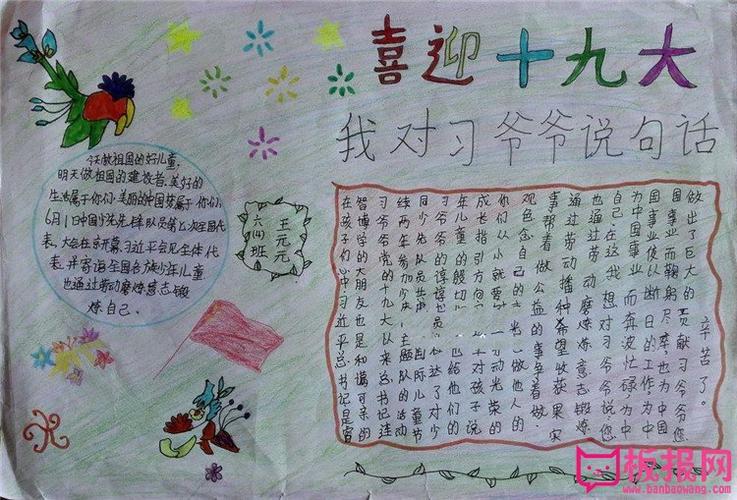 喜迎十九大
我对习爷爷说句话
今天做祖国的好儿童,
明天做祖国的建设者,美好的
生活属于你们,美丽的中国梦属于你们,
6月1日中国少先先锋队员第七次全国代
表大会在京开幕习近平会见全体代
表,并寄语全国各族少年儿童
也通过劳动磨炼意志锻
炼自己.
王元元
六(4)班
在孩子们心中习近平总书记是睿
智博学的大朋友也是和谐可亲的
习爷爷党的十九大以来总书记连
续两年参加少先队主题队的活动
同少先队员共国际儿童节
习爷爷的谆谆达了对少
年儿童的殷切也给他们的
成长指引方向对孩子说
你们从小就要动光荣的
观念自己的一做他人的
事帮着做公益的事争着做.
通过劳动播种希望收获果实
也通过劳动磨炼意志锻炼
自己在这我想对习爷爷说您
为中国事业而奔波忙碌,为中
国事业使以断日的工作,为中
国事业而鞠躬尽瘁,也为中国
做出了巨大的贡献习爷爷您
辛苦了。
板报网
www.banbaowang.com